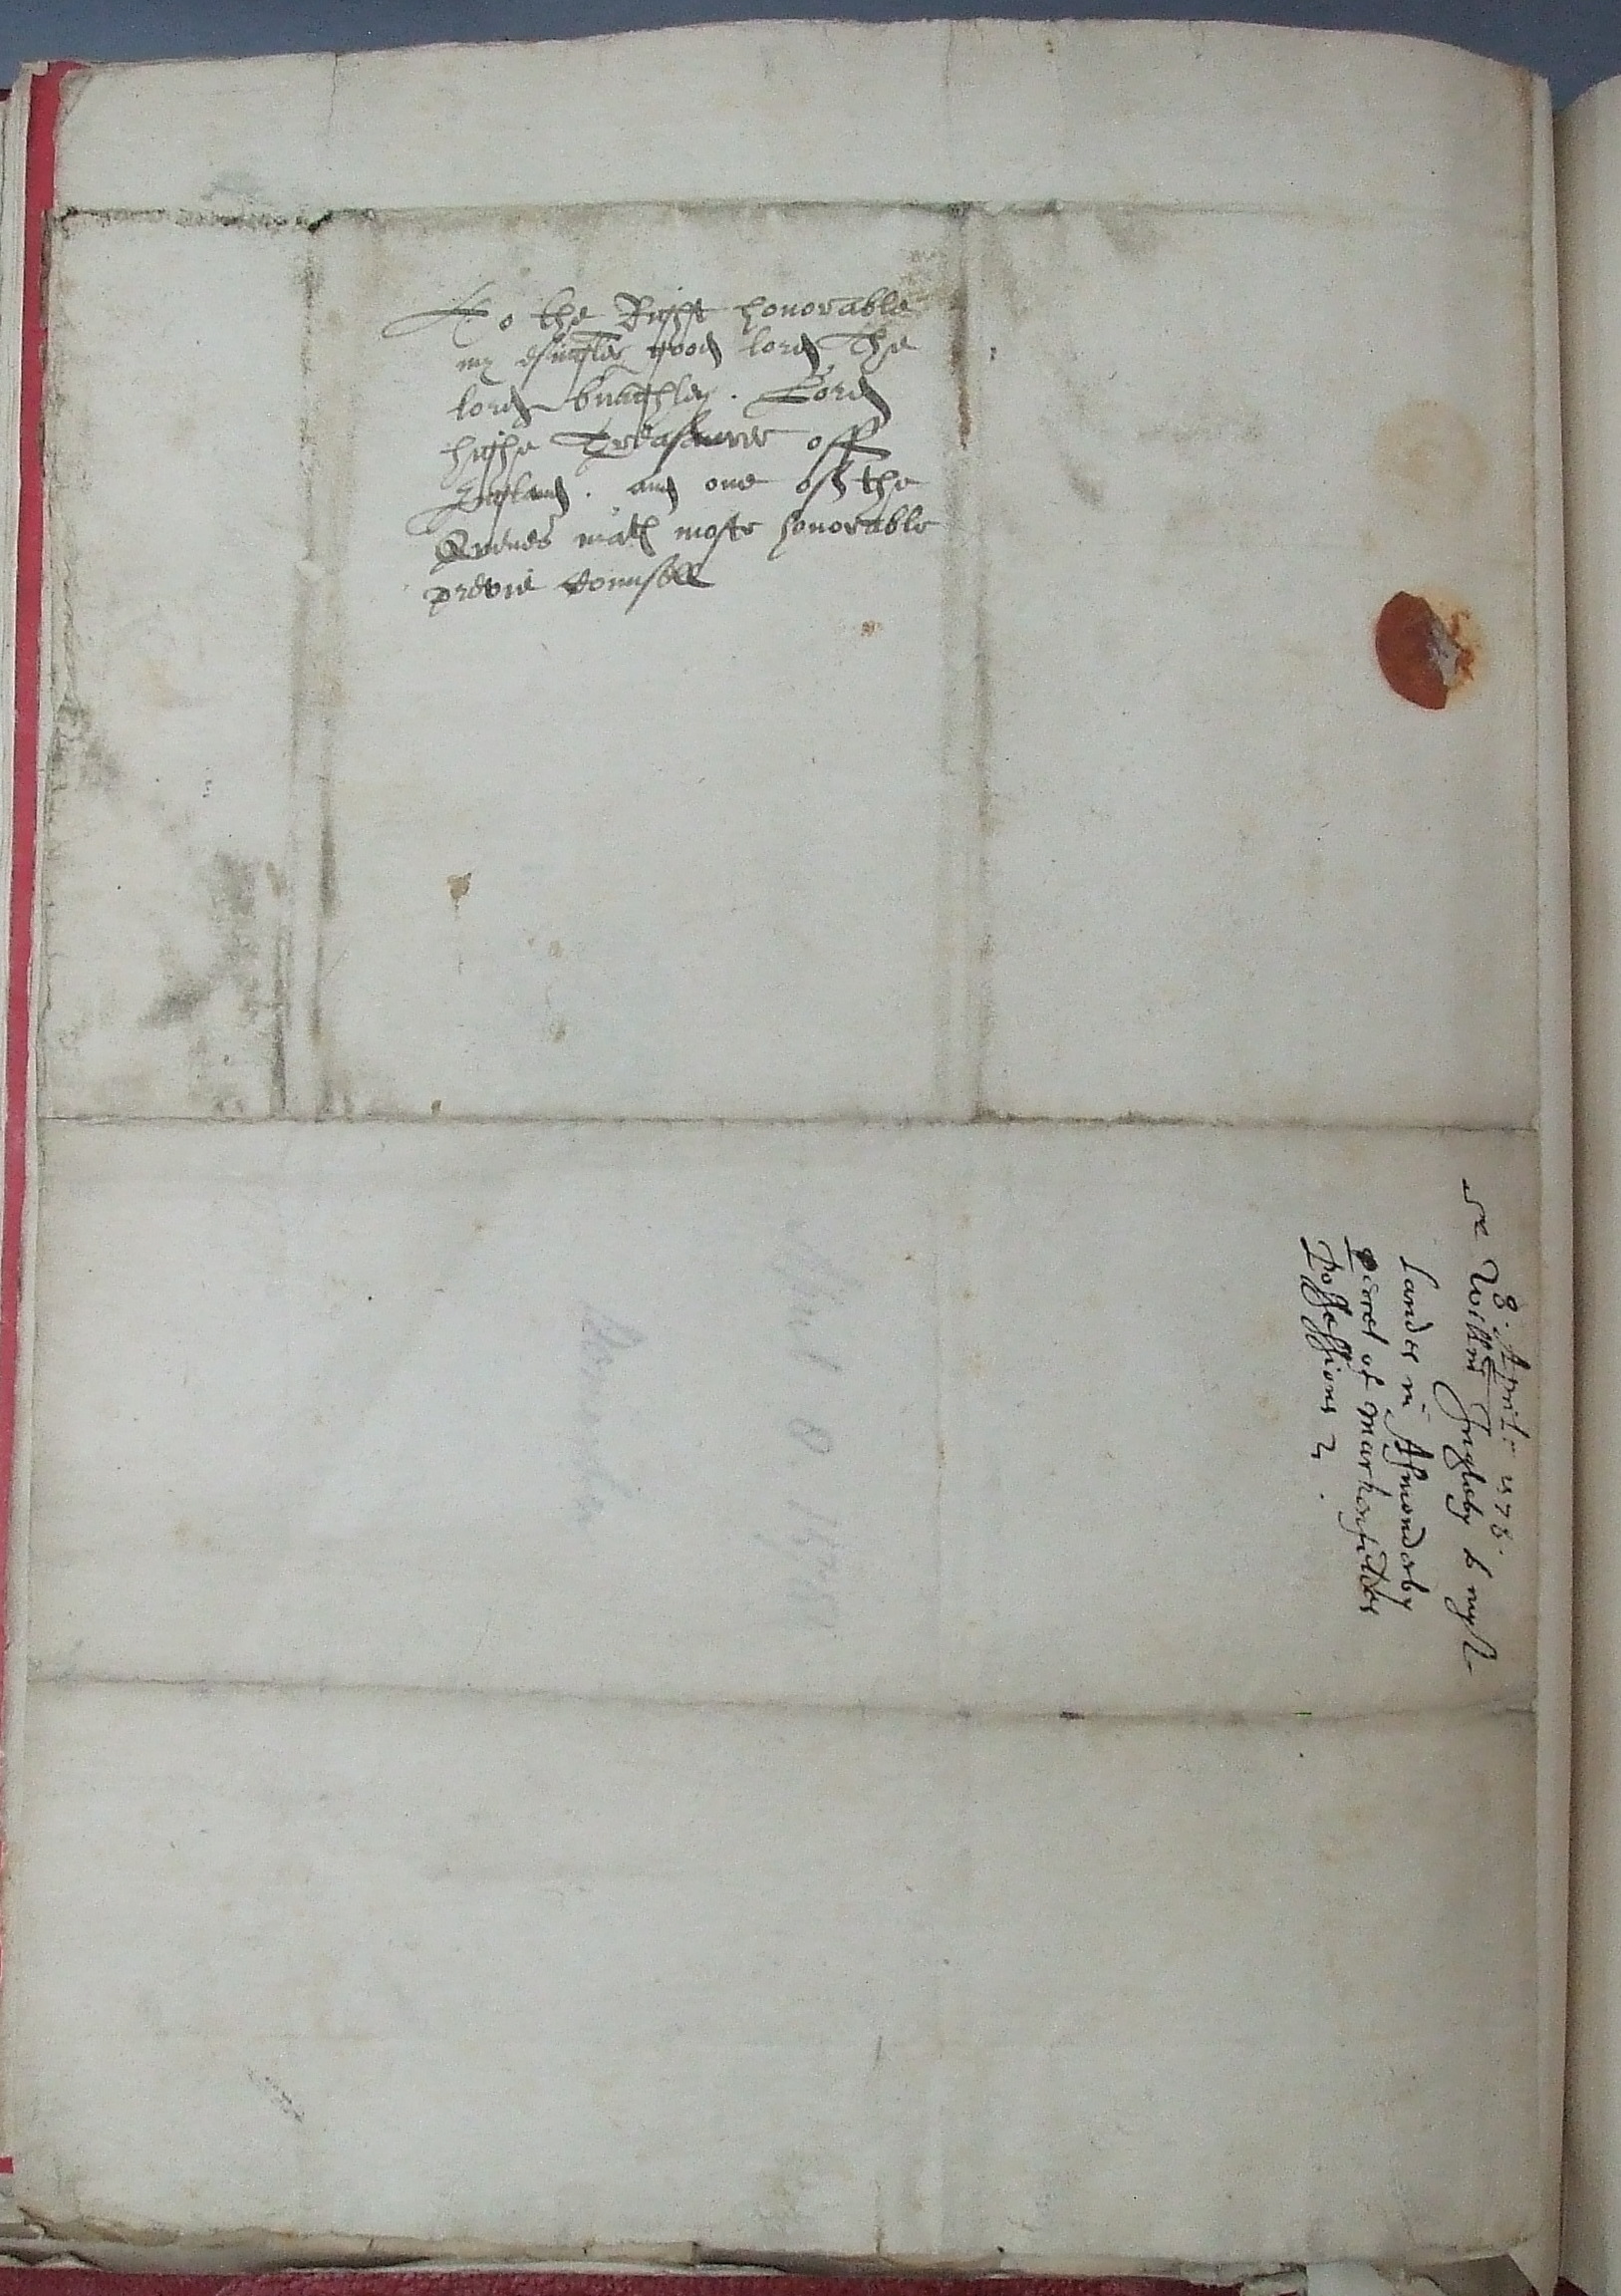 To the Right honorable
my esinguler good lord The
lord burghley. Lord
highe Treasaurer off
England. and one off the
Quenes maties moste honorable
previe Counsell
8. April: 1578.
Sr Willm Ingleby to my L
Landes in Asmonderby
parcel of Markenfeldes
Possessions.